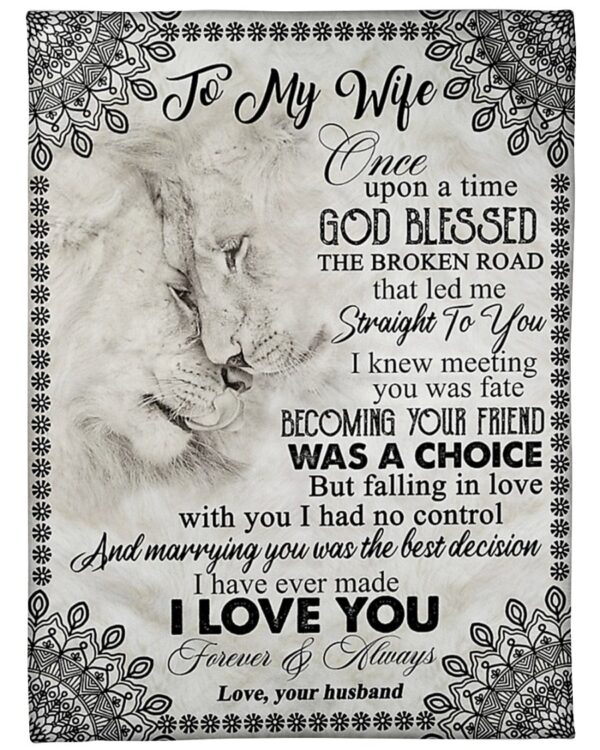 To My Wife
Once
upon a time
GOD BLESSED
THE BROKEN ROAD
that led me
Straight To You
I knew meeting
you was fate
BECOMING YOUR FRIEND
WAS A CHOICE
But falling in love
with you I had no control
And marrying you was the best decision
I have ever made
I LOVE YOU
Forever & Always
Love, your husband